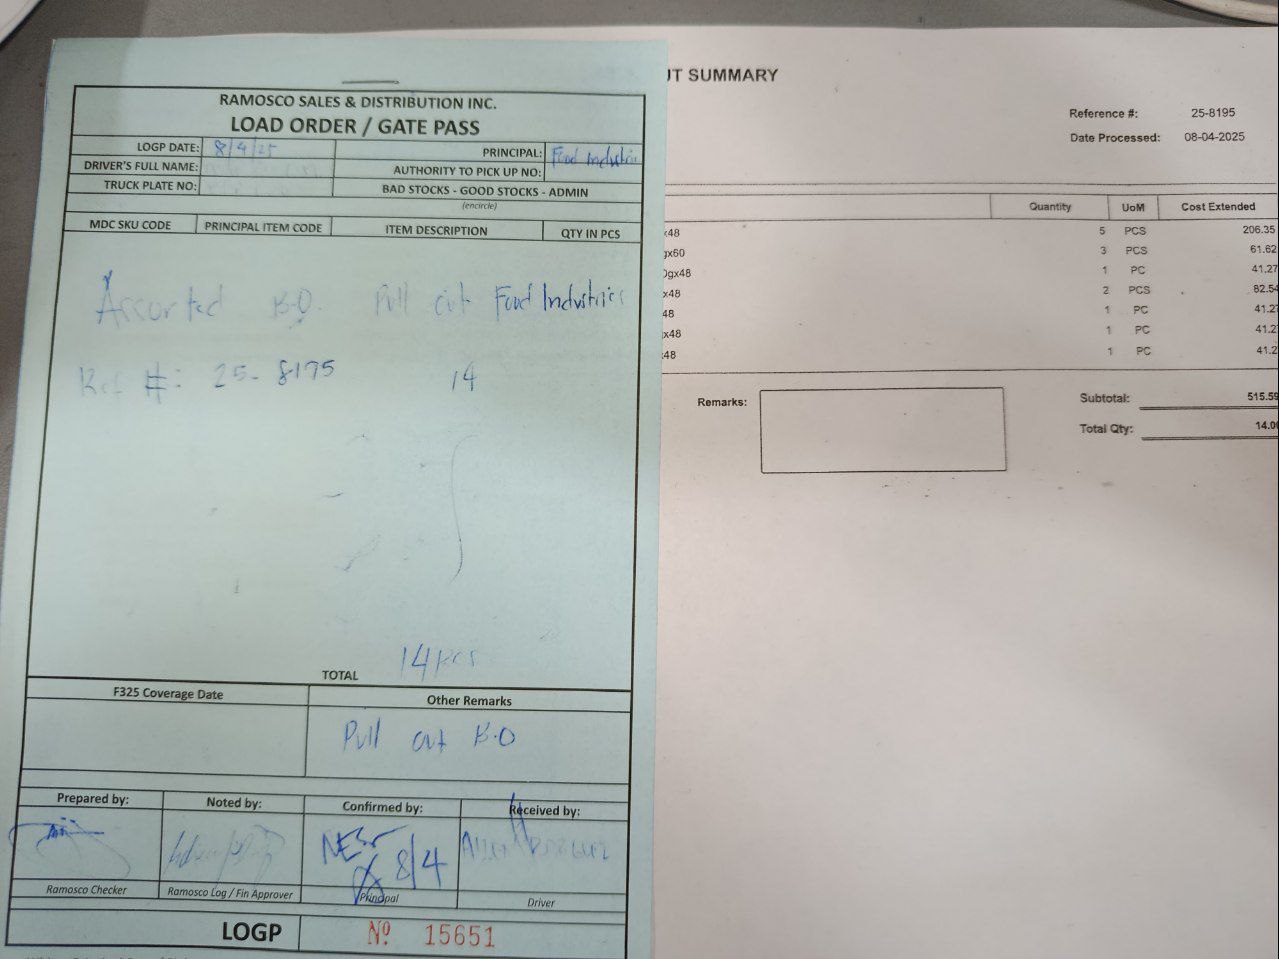 RAMOSCO SALES & DISTRIBUTION INC.
LOAD ORDER / GATE PASS
LOGP DATE: 8/4/25
PRINCIPAL: Food Industries
DRIVER'S FULL NAME:
AUTHORITY TO PICK UP NO:
TRUCK PLATE NO:
BAD STOCKS - GOOD STOCKS - ADMIN
(encircle)
MDC SKU CODE PRINCIPAL ITEM CODE ITEM DESCRIPTION QTY IN PCS
Assorted B.O. Pull out Food Industries
Ref #: 25-8195 14
TOTAL 14 pcs
F325 Coverage Date Other Remarks
Pull out B.O
Prepared by: Noted by: Confirmed by: Received by:
8/4
Ramosco Checker Ramosco Log / Fin Approver Principal Driver
LOGP Nº 15651
UT SUMMARY
Reference #: 25-8195
Date Processed: 08-04-2025
Quantity UoM Cost Extended
x48 5 PCS 206.35
gx60 3 PCS 61.62
0gx48 1 PC 41.27
x48 2 PCS 82.54
48 1 PC 41.27
x48 1 PC 41.2
48 1 PC 41.2
Remarks:
Subtotal: 515.59
Total Qty: 14.00